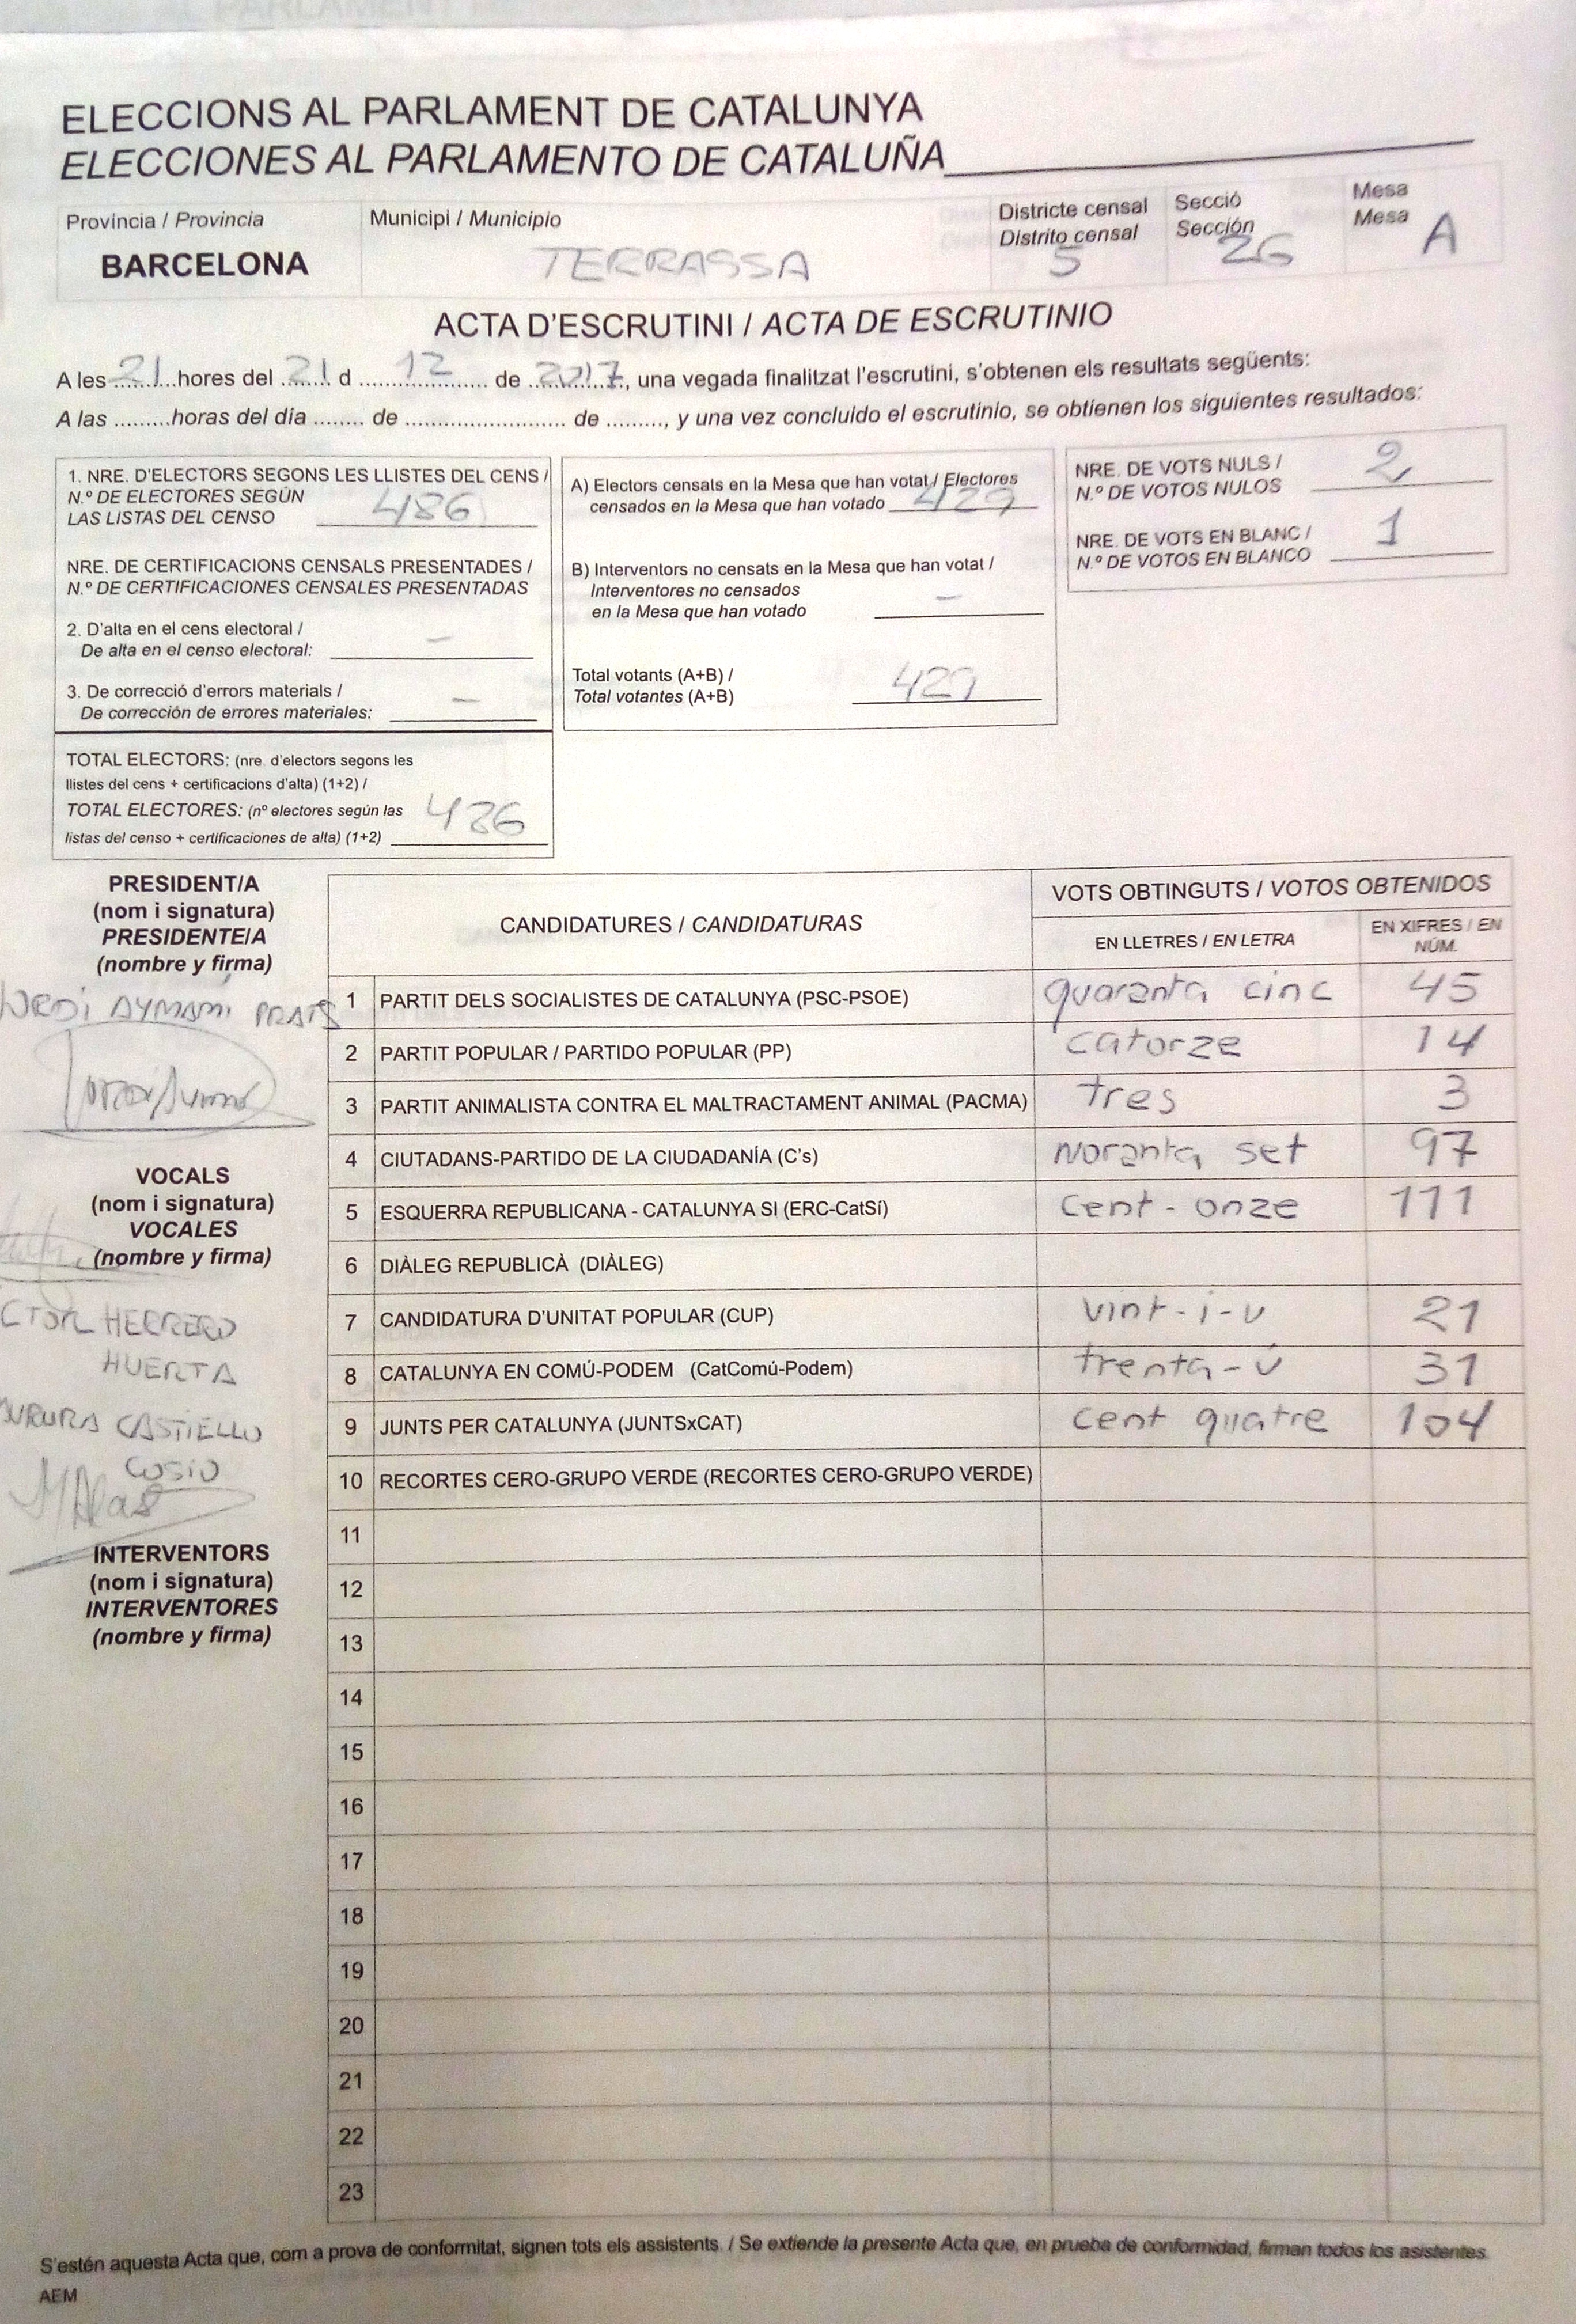 ELECCIONS AL PARLAMENT DE CATALUNYA
ELECCIONES AL PARLAMENTO DE CATALUÑA
Província / Provincia
BARCELONA
Municipi / Municipio
TERRASSA
Districte censal
Distrito censal
5
Secció
Sección
26
Mesa
Mesa
A
ACTA D'ESCRUTINI / ACTA DE ESCRUTINIO
A les 21 hores del 21 d 12 de 2017, una vegada finalitzat l'escrutini, s'obtenen els resultats següents:
A las .........horas del día ........ de .......................... de ........., y una vez concluido el escrutinio, se obtienen los siguientes resultados:
1. NRE. D'ELECTORS SEGONS LES LLISTES DEL CENS /
N.º DE ELECTORES SEGÚN
LAS LISTAS DEL CENSO 486
NRE. DE CERTIFICACIONS CENSALS PRESENTADES /
N.º DE CERTIFICACIONES CENSALES PRESENTADAS
2. D'alta en el cens electoral /
De alta en el censo electoral: –
3. De correcció d'errors materials /
De corrección de errores materiales: –
TOTAL ELECTORS: (nre. d'electors segons les
llistes del cens + certificacions d'alta) (1+2) /
TOTAL ELECTORES: (nº electores según las
listas del censo + certificaciones de alta) (1+2) 486
A) Electors censats en la Mesa que han votat / Electores
censados en la Mesa que han votado 429
B) Interventors no censats en la Mesa que han votat /
Interventores no censados
en la Mesa que han votado –
Total votants (A+B) /
Total votantes (A+B) 429
NRE. DE VOTS NULS /
N.º DE VOTOS NULOS 2
NRE. DE VOTS EN BLANC /
N.º DE VOTOS EN BLANCO 1
PRESIDENT/A
(nom i signatura)
PRESIDENTE/A
(nombre y firma)
JORDI AYMAMÍ PRATS
VOCALS
(nom i signatura)
VOCALES
(nombre y firma)
CTOR HERRERO
HUERTA
AURORA CASTIELLO
COSIO
INTERVENTORS
(nom i signatura)
INTERVENTORES
(nombre y firma)
CANDIDATURES / CANDIDATURAS
VOTS OBTINGUTS / VOTOS OBTENIDOS
EN LLETRES / EN LETRA
EN XIFRES / EN
NÚM.
1 PARTIT DELS SOCIALISTES DE CATALUNYA (PSC-PSOE) quaranta cinc 45
2 PARTIT POPULAR / PARTIDO POPULAR (PP) catorze 14
3 PARTIT ANIMALISTA CONTRA EL MALTRACTAMENT ANIMAL (PACMA) tres 3
4 CIUTADANS-PARTIDO DE LA CIUDADANÍA (C's) noranta set 97
5 ESQUERRA REPUBLICANA - CATALUNYA SI (ERC-CatSí) cent-onze 111
6 DIÀLEG REPUBLICÀ (DIÀLEG)
7 CANDIDATURA D'UNITAT POPULAR (CUP) vint-i-u 21
8 CATALUNYA EN COMÚ-PODEM (CatComú-Podem) trenta-ú 31
9 JUNTS PER CATALUNYA (JUNTSxCAT) cent quatre 104
10 RECORTES CERO-GRUPO VERDE (RECORTES CERO-GRUPO VERDE)
11
12
13
14
15
16
17
18
19
20
21
22
23
S'estén aquesta Acta que, com a prova de conformitat, signen tots els assistents. / Se extiende la presente Acta que, en prueba de conformidad, firman todos los asistentes.
AEM